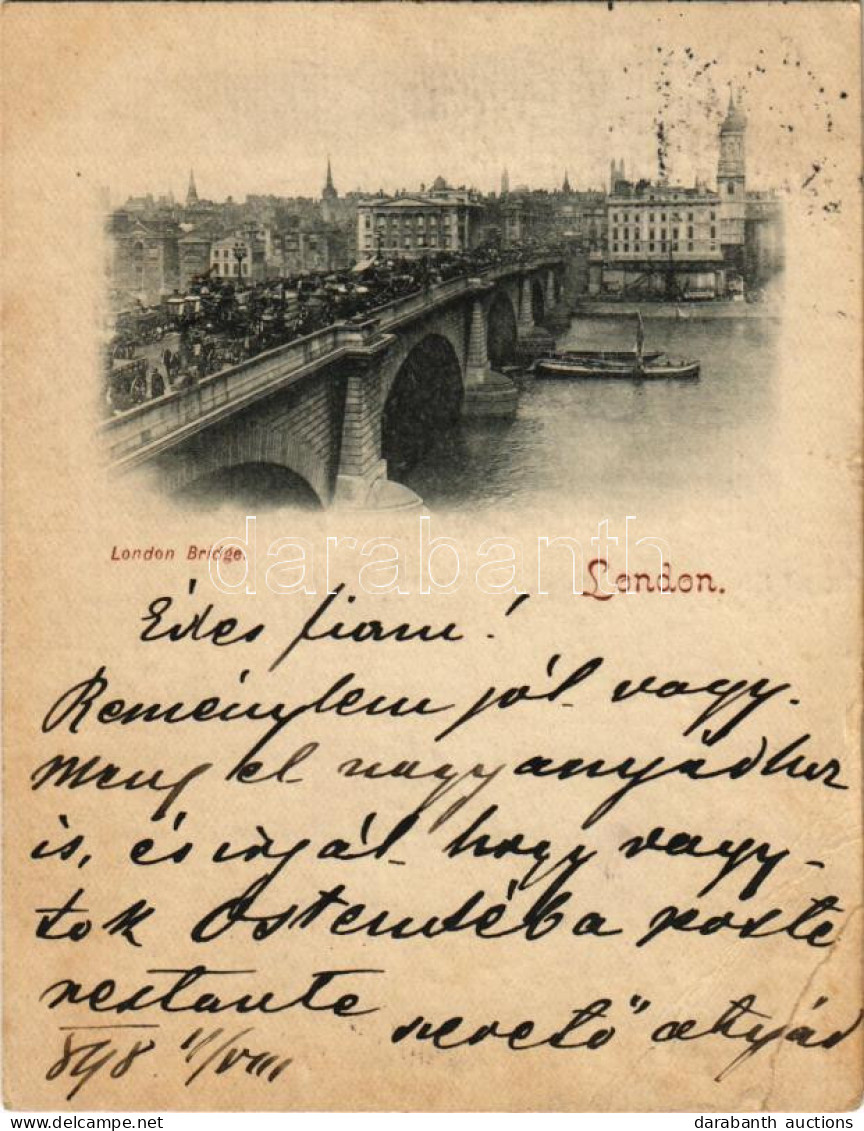 London Bridge.
darabanth
London.
Édes fiam!
Reménylem jól vagy.
Menj el nagyanyádhoz
is, és irjál hogy vagy-
tok Ostendéba poste
restante szerető atyád
898 11/VIII
darabanth auctions